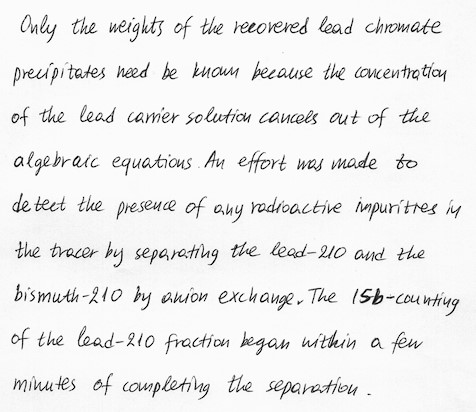 Only the weights of the recovered lead chromate
precipitates need be known because the concentration
of the lead carrier solution cancels out of the
algebraic equations. An effort was made to
detect the presence of any radioactive impuritres in
the tracer by separating the lead-210 and the
bismuth-210 by anion exchange. The 15b-counting
of the lead-210 fraction began within a few
minutes of completing the separation.